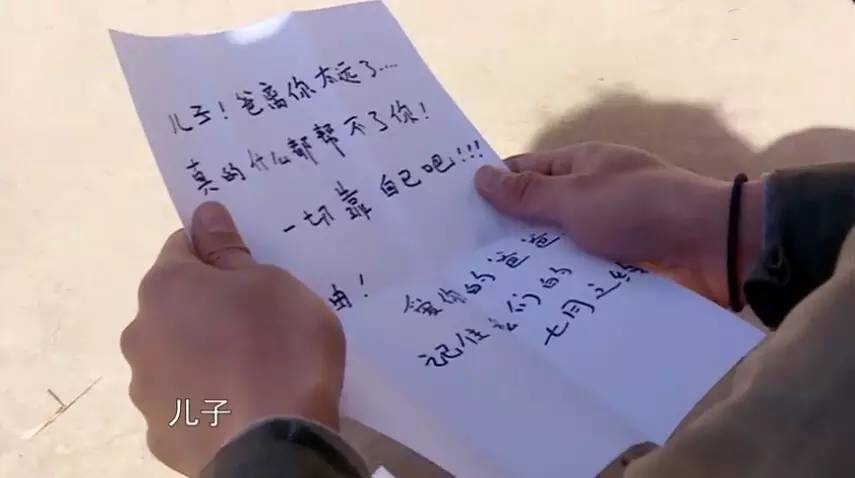 儿子！爸离你太远了....
真的什么都帮不了你！
一切靠自己吧!!!
由！
爱你的爸爸.
记住我们的
七月之约
儿子